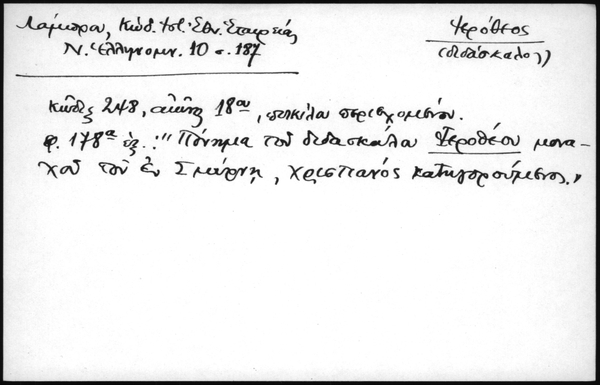 Λάμπρου, Κώδ. Ἱστ. Ἐθν. Ἑταιρείας
Ν. Ἑλληνομν. 10 σ. 187
Ἱερόθεος
(διδάσκαλος)
Κῶδιξ 248, αἰῶνος 18ου, ποικίλου περιεχομένου.
φ. 178α ἑξ.: "Πόνημα τοῦ διδασκάλου Ἱεροθέου μονα-
χοῦ τοῦ ἐν Σμύρνῃ, χριστιανός κατηγορούμενος."